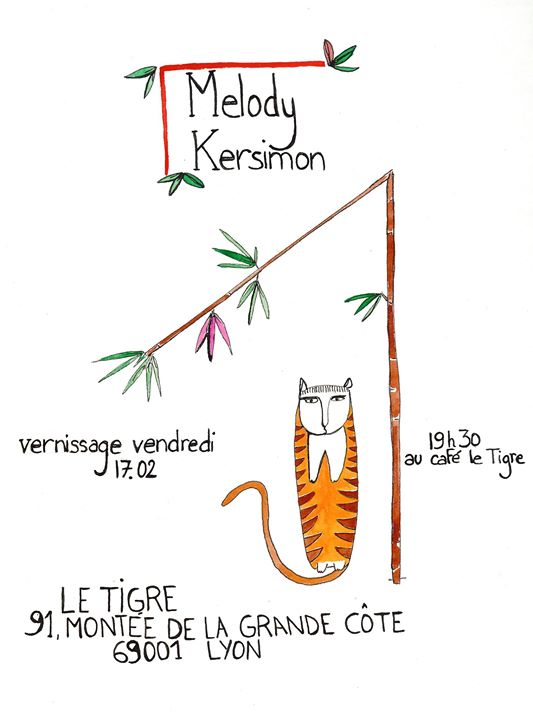 Melody
Kersimon
vernissage vendredi
17.02
19h30
au café le Tigre
LE TIGRE
91, MONTÉE DE LA GRANDE CÔTE
69001 LYON